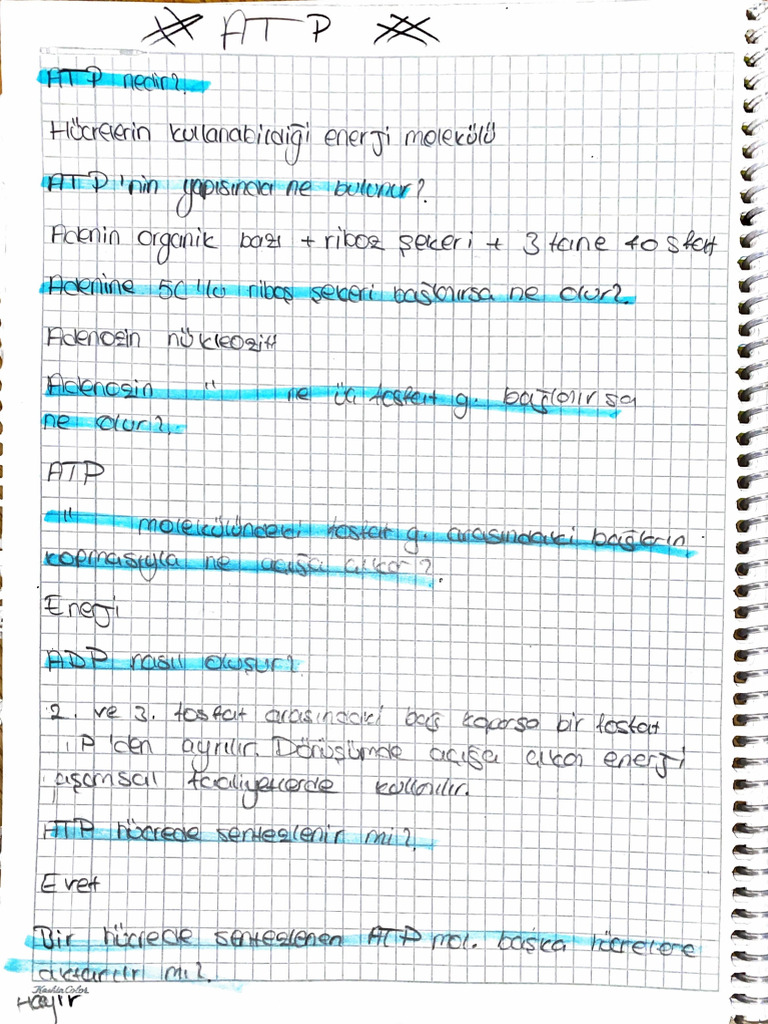 ATP
ATP nedir?
Hücrelerin kullanabildiği enerji molekülü
ATP'nin yapısında ne bulunur?
Adenin organik bazı + riboz şekeri + 3 tane fosfat
Adenine 5C'lu riboz şekeri bağlanırsa ne olur?
Adenozin nükleoziti
Adenozin " ne üç fosfat g. bağlanırsa
ne olur?
ATP
" molekülündeki fosfat g. arasındaki bağların
kopmasıyla ne açığa çıkar?
Enerji
ADP nasıl oluşur?
2. ve 3. fosfat arasındaki bağ koparsa bir fosfat
P'den ayrılır. Dönüşümde açığa çıkan enerji
yaşamsal faaliyetlerde kullanılır.
ATP hücrede sentezlenir mi?
Evet
Bir hücrede sentezlenen ATP mol. başka hücrelere
aktarılır mı?
Hayır